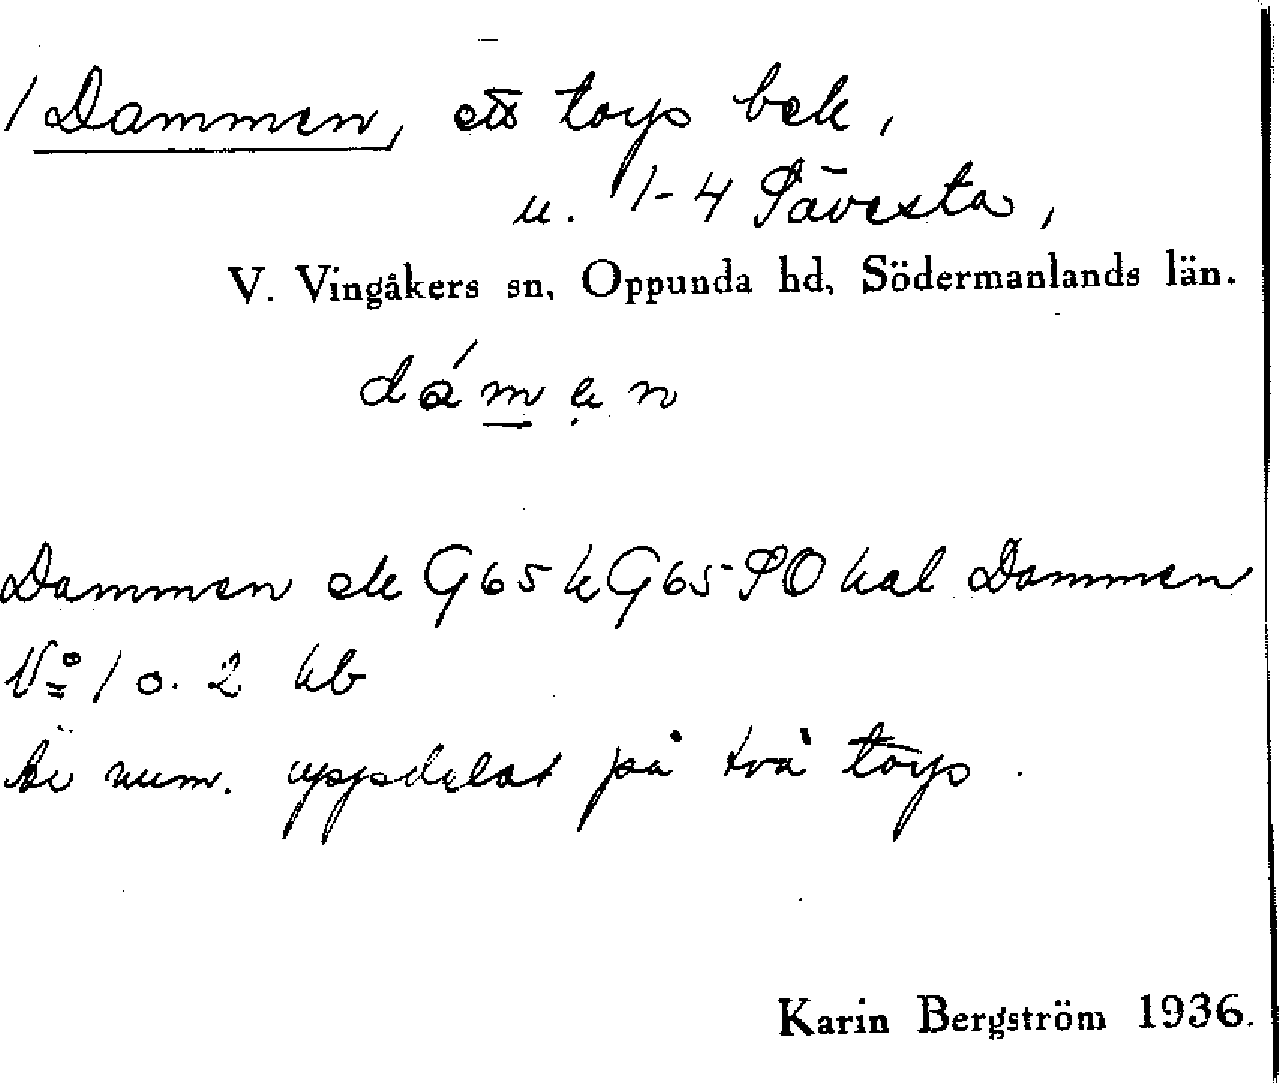 1 Dammen, ett torp bek,
u. 1-4 Sävesta,
V. Vingåkers sn, Oppunda hd, Södermanlands län.
dámen
Dammen ek G65 k G65 SO kal Dammen
No 1 o. 2 kb
är num. uppdelat på två torp.
Karin Bergström 1936.